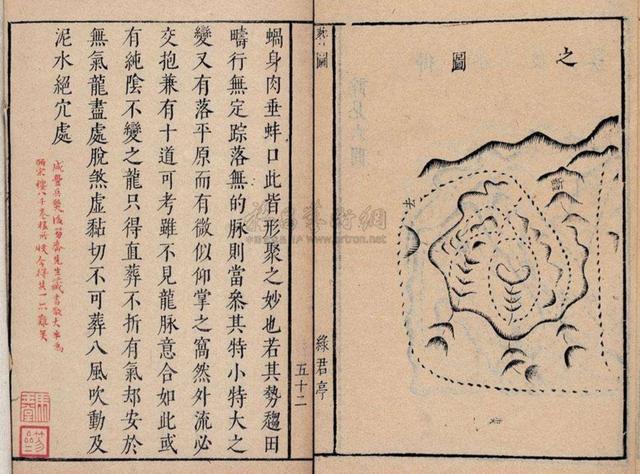 之圖
圖
綠君亭
五十二
蝸身肉垂蚌口此皆形聚之妙也若其勢趨田
疇行無定踪落無的脉則當叅其特小特大之
變又有落平原而有微似仰掌之窩然外流必
交抱兼有十道可考雖不見龍脉意合如此或
有純陰不變之龍只得直葬不折有氣却安於
無氣龍盡處脫煞虛黏切不可葬八風吹動及
泥水絕穴處
咸豐兵燹後先生藏書散大半為
皕宋樓八千卷樓所收今得其一二難矣
www.artron.net